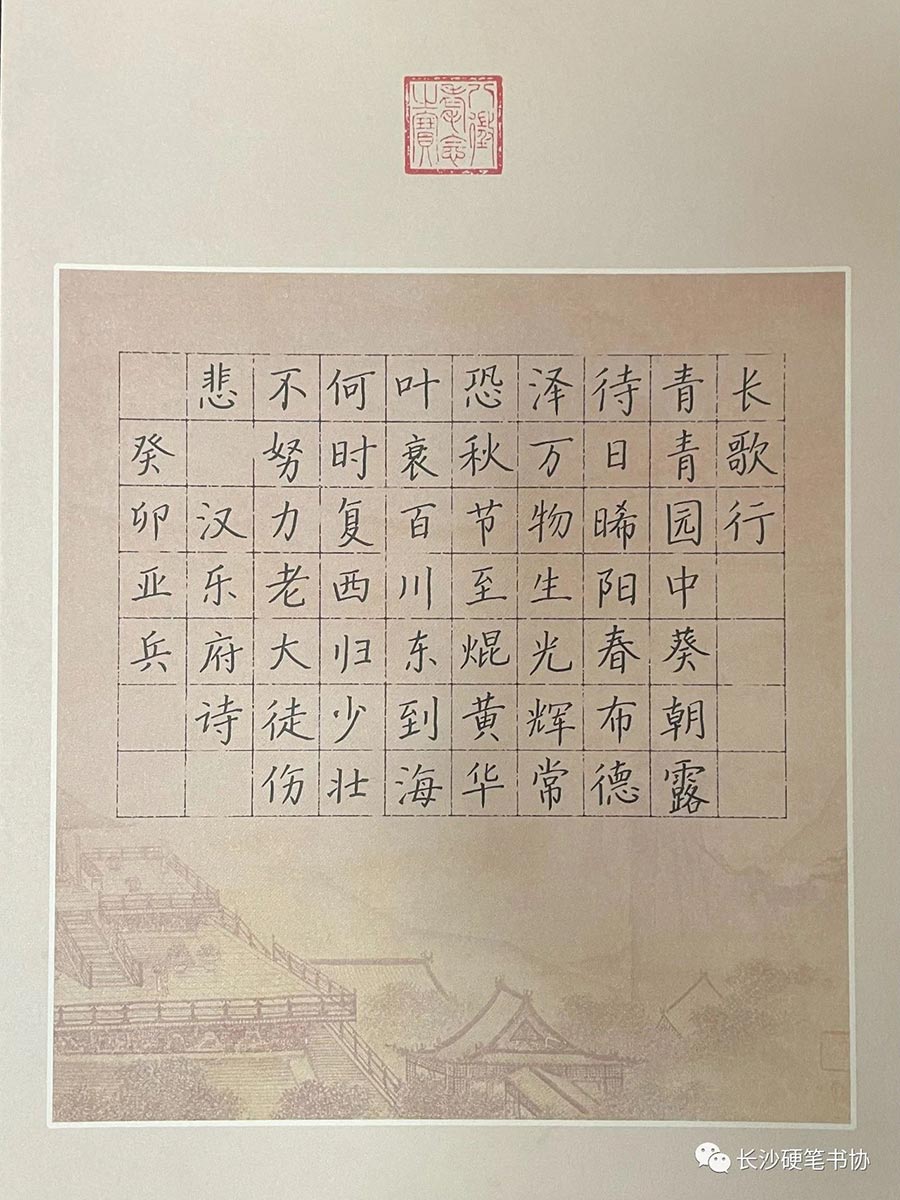 八徵耄念之寶
长歌行
青青园中葵朝露
待日晞阳春布德
泽万物生光辉常
恐秋节至焜黄华
叶衰百川东到海
何时复西归少壮
不努力老大徒伤
悲 汉乐府诗
癸卯亚兵
长沙硬笔书协